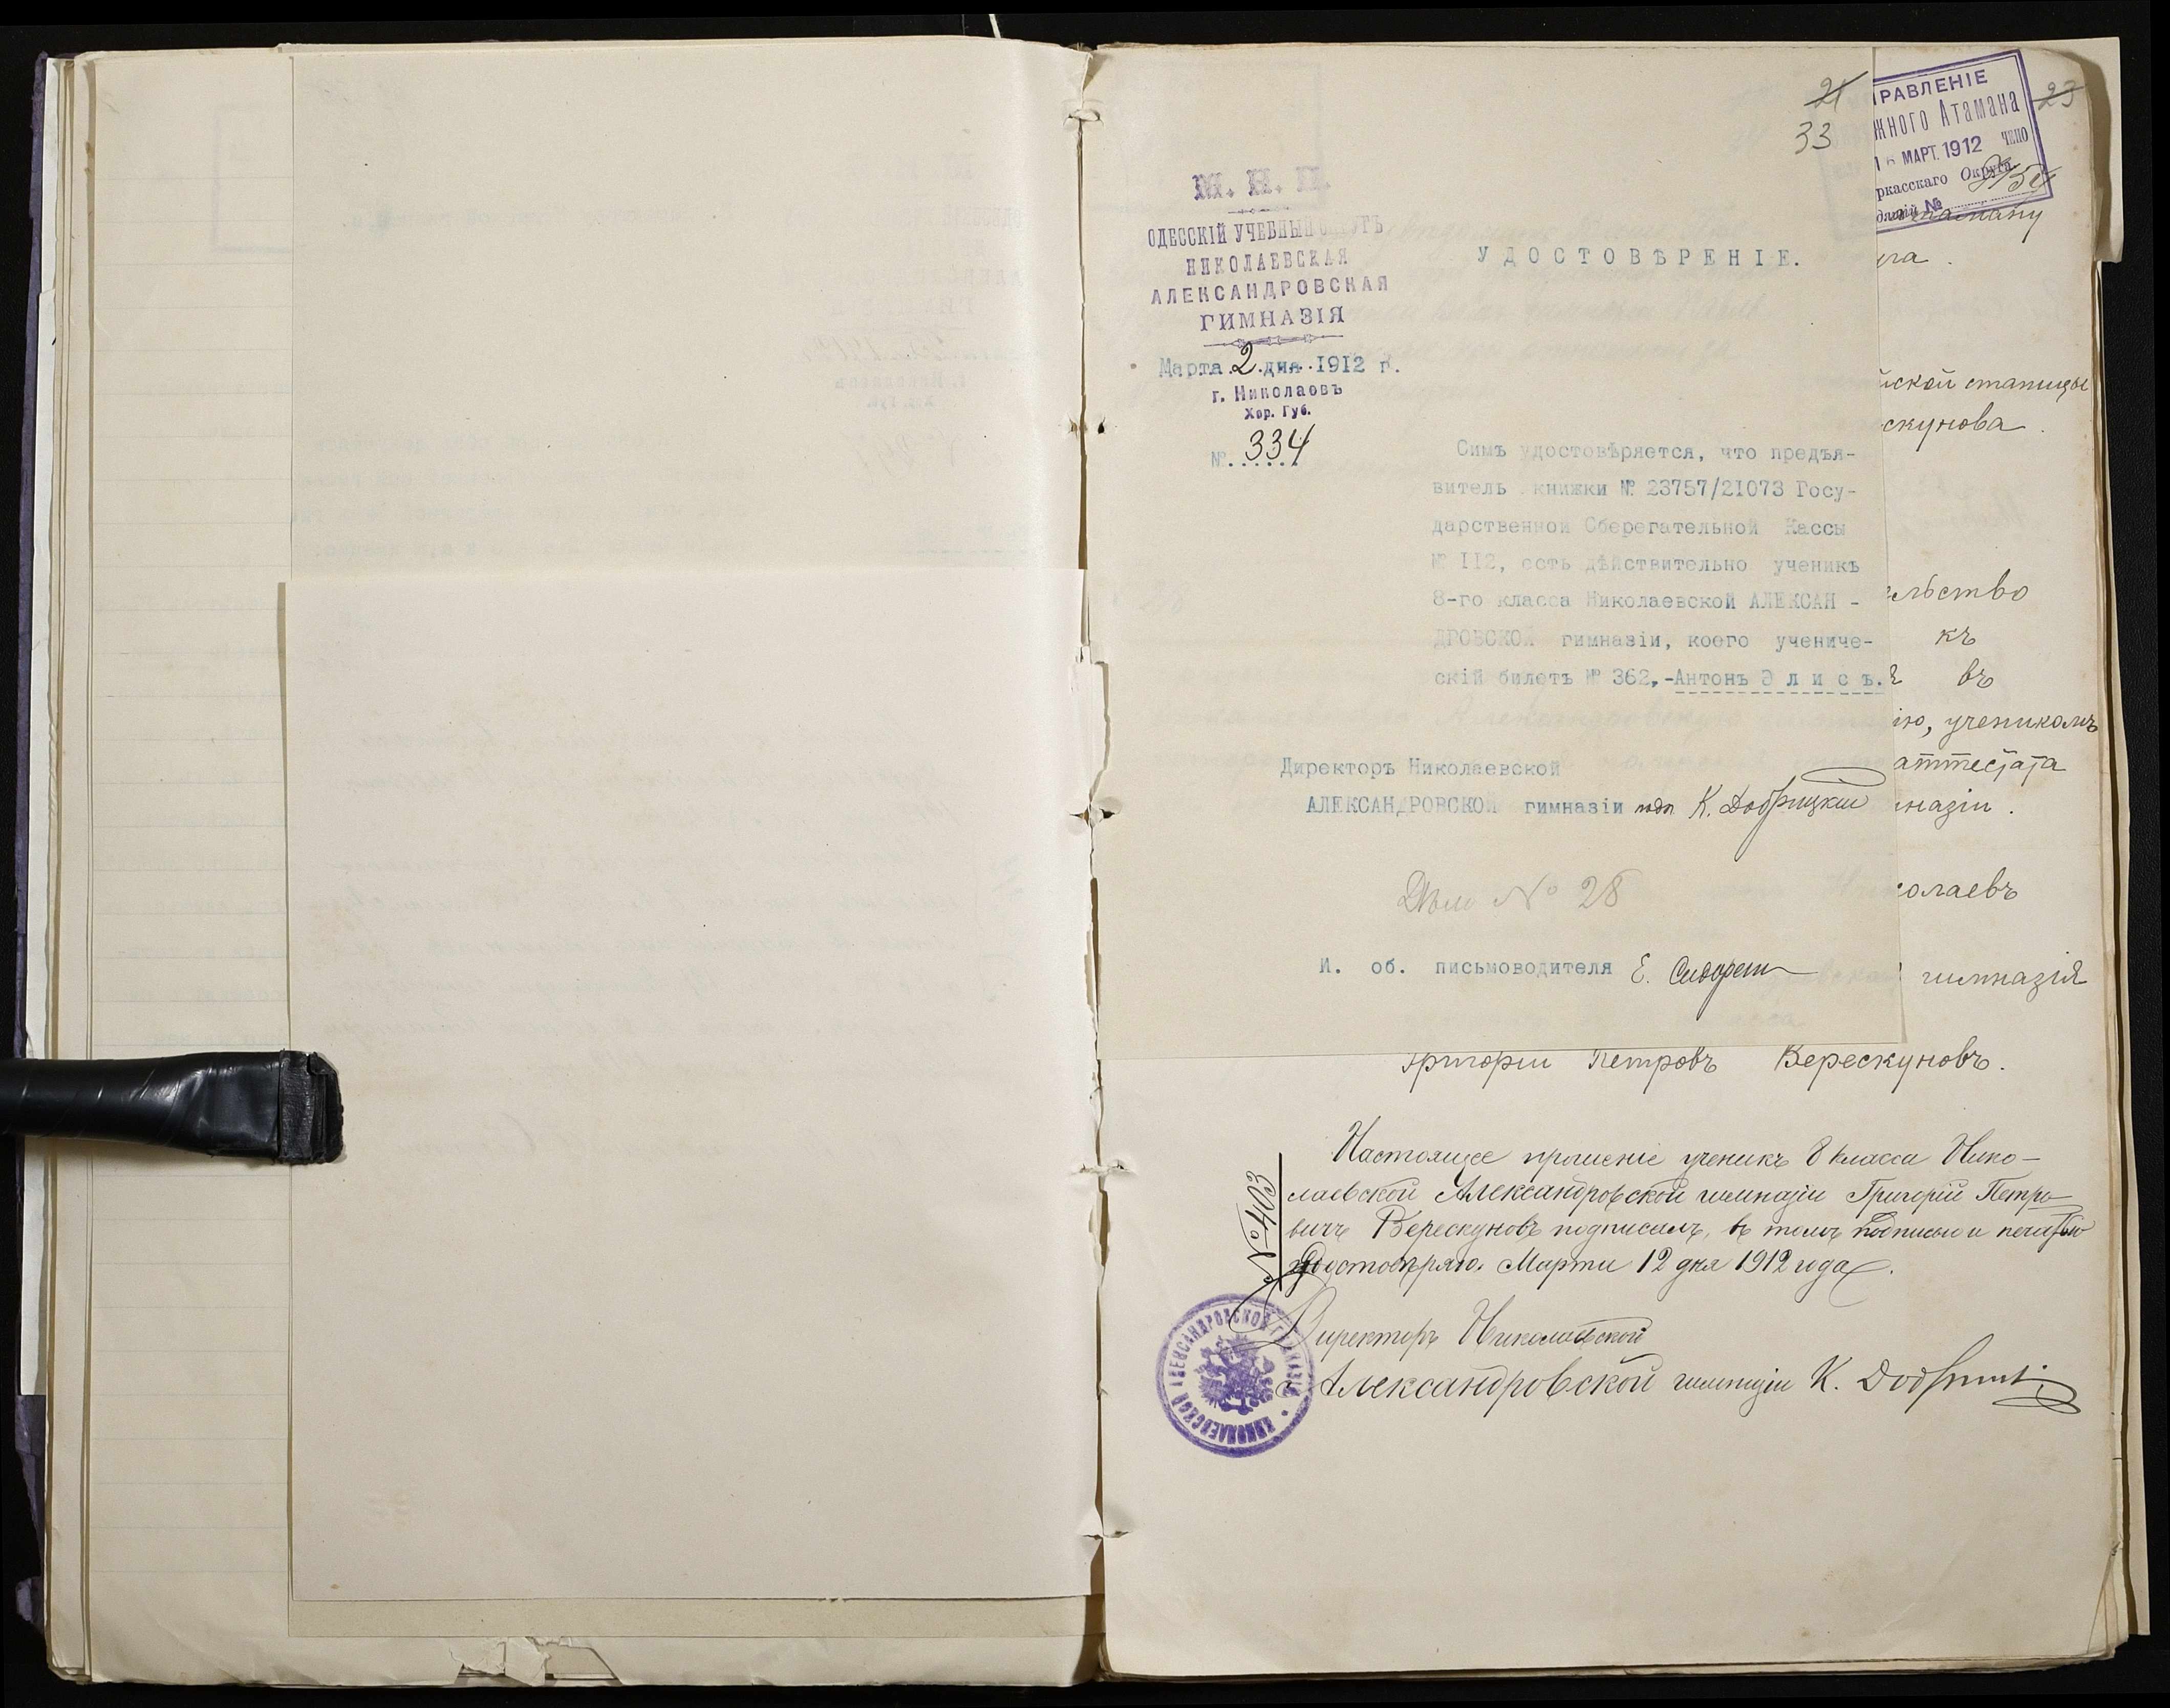 21
33
М. Н. П.
ОДЕССКІЙ УЧЕБНЫЙ ОКРУГЪ
НИКОЛАЕВСКАЯ
АЛЕКСАНДРОВСКАЯ
ГИМНАЗІЯ
Марта 2 дня 1912 г.
г. Николаевъ
Хер. Губ.
№ 334
УДОСТОВѢРЕНІЕ.
Симъ удостовѣряется, что предъя-
витель книжки № 23757/21073 Госу-
дарственной Сберегательной Кассы
№ 112, есть дѣйствительно ученикъ
8-го класса Николаевской АЛЕКСАН -
ДРОВСКОЙ гимназіи, коего учениче-
скій билетъ № 362,-Антонъ Э л и с ъ.
Директоръ Николаевской
АЛЕКСАНДРОВСКОЙ гимназіи подп К. Добрицкій
Дѣло № 28
И. об. письмоводителя Е.
РАВЛЕНІЕ
ЖНОГО Атамана
МАРТ. 1912
ркасскаго Округа
дящій №
23
атаману
га.
йской станицы
скунова.
ельство
къ
въ
ію, ученикомъ
аттестата
назіи.
олаевъ
гимназія
Григорій Петровъ Верескуновъ.
№ 403
Настоящее прошеніе ученикъ 8 класса Нико-
лаевской Александровской гимназіи Григорій Петро-
вичъ Верескуновъ подписалъ, въ томъ подписью и печатью
удостовѣряю. Марта 12 дня 1912 года.
Директоръ Николаевской
Александровской гимназіи К. Добрицкій
НИКОЛАЕВСКОЙ АЛЕКСАНДРОВСКОЙ ГИМНАЗІИ